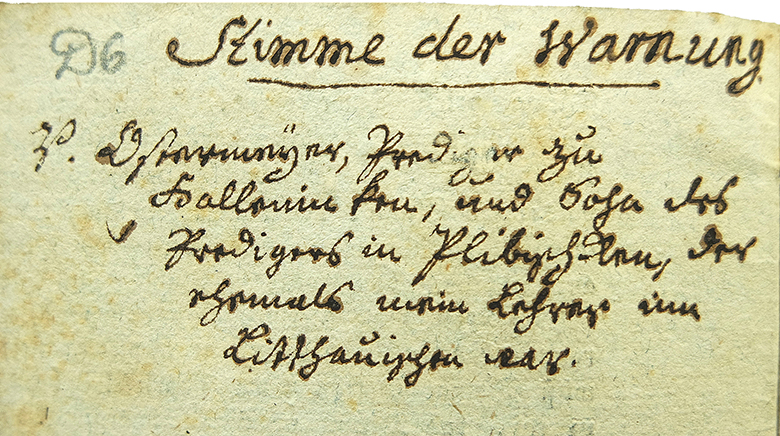 D6 Stimme der Warnung
v. Ostermeÿer, Prediger zu
Kalleninken, und Sohn des
Predigers in Plibischken, der
ehemals mein Lehrer im
Litthauischen war.